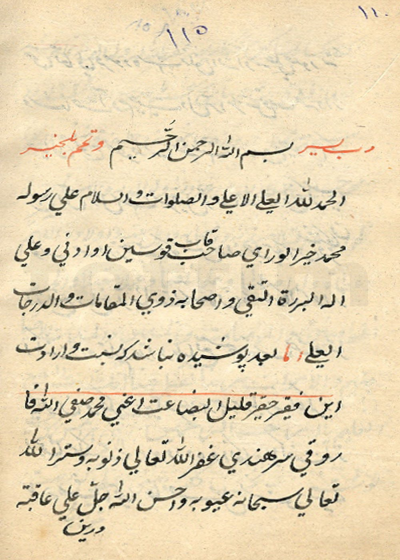 ١١٠
١١٥
رب يسر بسم الله الرحمن الرحيم وتمم بالخير
الحمد لله العلي الاعلي والصلوات والسلام علي رسوله
محمد خير الوراي صاحب قاب قوسين او ادني وعلي
اله البررة التقي واصحابه ذوي المقامات والدرجات
العلي اما بعد پوشيده نباشد كه نسبت وارادت
اين فقير حقير قليل البضاعت اعني محمد صفي الله فا
روقي سرهندي غفر الله تعالي ذنوبه وستر الله
تعالي سبحانه عيوبه واحسن الله جل علي عاقبته